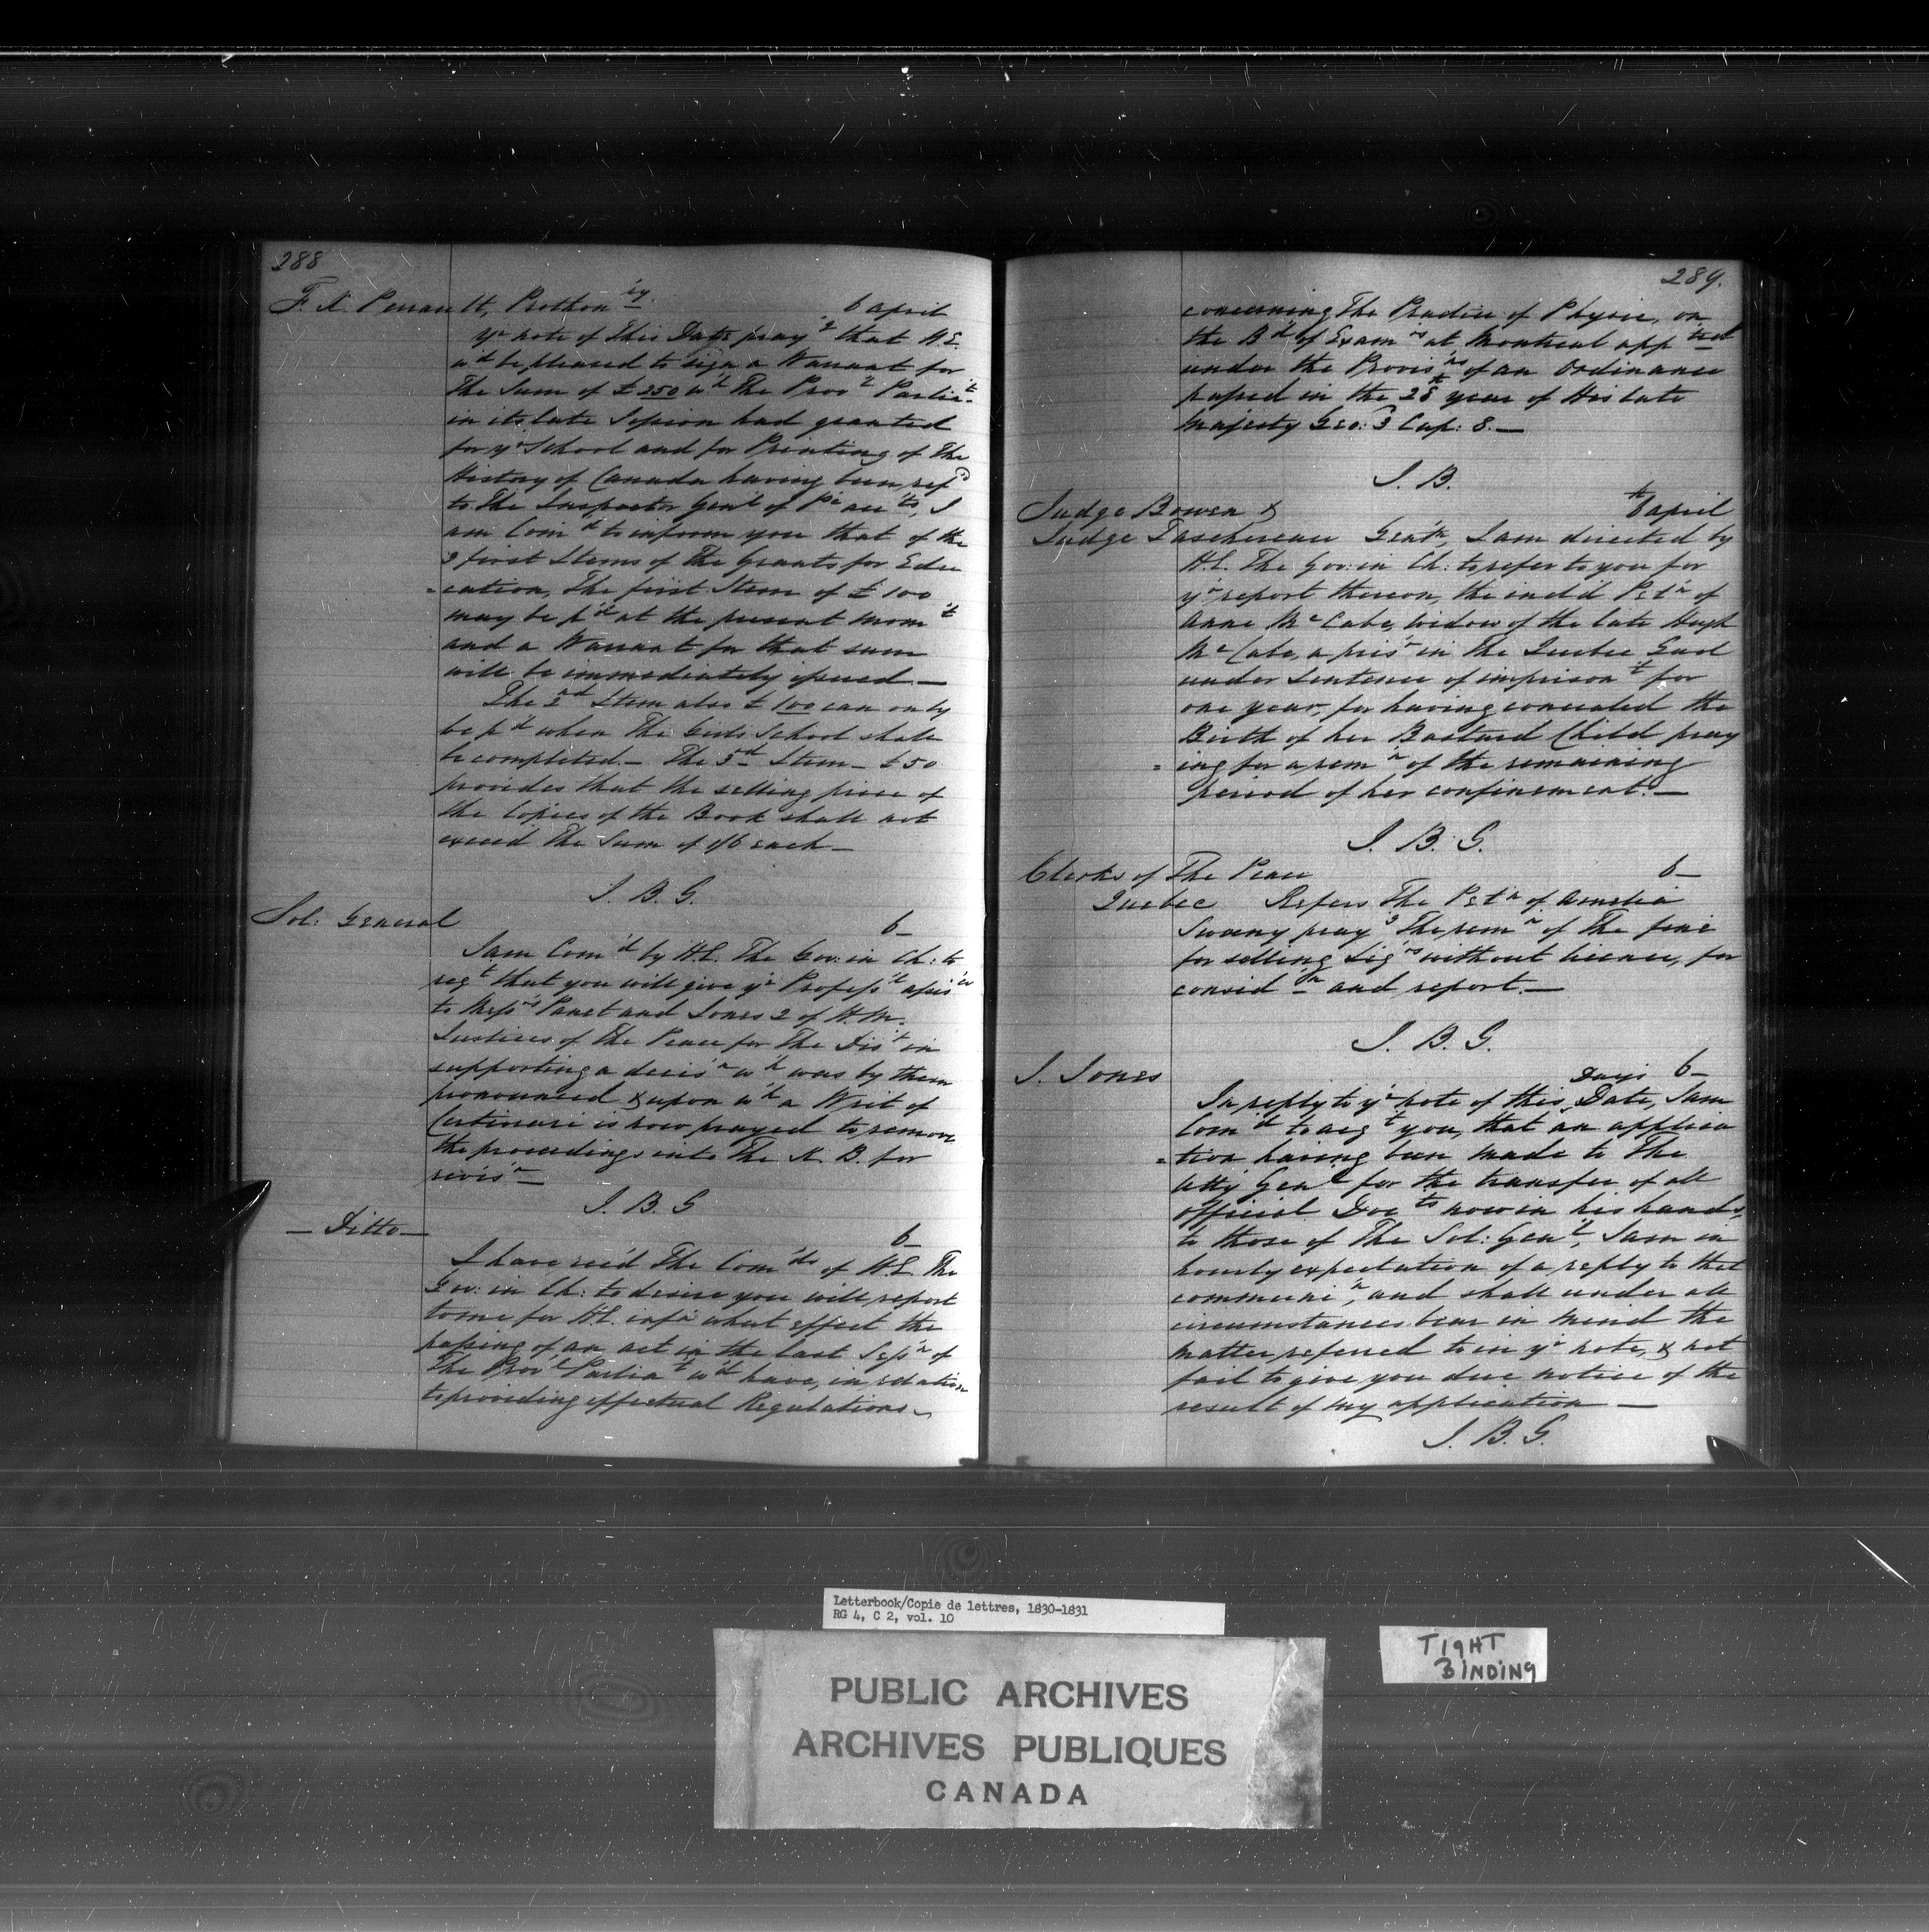 288
F. X. Perrault, Prothon'ry. 6 april
Yr note of this Date pray'g that H.E.
wd be pleased to sign a Warrant for
the Sum of £250 w'h The Prov'l Parlia't
in its late Session had granted
for yr School and for Printing of The
History of Canada having been ref'd
to The Inspector Gen'l of P'c acc'ts, I
am Com'd to inform you that of the
3 first Items of The Grants for Edu
=cation, The first Item of £100
may be p'd at the present mom't
and a Warrant for that sum
will be immediately issued.—
The 2nd Item also £100 can only
be p'd when The Girls School shall
be completed.— The 3d Item— £50
provides that the selling price of
the Copies of the Book shall not
exceed The Sum of 1/6 each—
J. B. G.
Sol: General 6—
I am Com'd by H.E. The Gov: in Ch: to
reqt that you will give yr Profess'l assis'ce
to Messrs Panet and Jones 2 of H.M.
Justices of The Peace for The Dis't in
supporting a decis'n w'h was by them
pronounced & upon w'h a Writ of
Certiorari is now prayed to remove
the proceedings into The K. B. for
revis'n—
J. B. G
— Ditto — 6—
I have rec'd The Com'ds of H.E. The
Gov: in Ch: to desire you will report
to me for H.E. inf'n what effect the
passing of an act in the last Sess'n of
The Prov'l Parlia't w'd have, in relation
to providing effectual Regulations—
289.
concerning The Practice of Physic, on
the B'd of Exam'rs at Montreal app'ted
under the Provis'ns of an Ordinance
passed in the 28th year of His late
Majesty Geo: 3 Cap: 8.—
J. B.
Judge Bowen & 6th april
Judge Taschereau Gent'n, I am directed by
H.E. The Gov: in Ch: to refer to you for
yr report thereon, the incl'd Pet'n of
Anne McCabe, widow of the late Hugh
McCabe, a pris'r in The Quebec Gaol
under Sentence of imprison't for
one year, for having concealed the
Birth of her Bastard Child pray
=ing for a rem'n of the remaining
period of her confinement.—
J. B. G.
Clerks of The Peace 6—
Quebec Refers The Pet'n of Amelia
Sweeny pray'g The rem'n of The fine
for selling Liq'rs without license, for
consid'n and report.—
J. B. G.
J. Jones 6—
Days
In reply to yr note of this Date, I am
Com'd to acqt you, that an applica
=tion having been made to The
Atty Gen'l for the transfer of all
Official Doc'ts now in his hands,
to those of The Sol: Gen'l, I am in
hourly expectation of a reply to that
communi'n, and shall under all
circumstances bear in mind the
matter referred to in yr note, & not
fail to give you due notice of the
result of my application —
J. B. G.
Letterbook/Copie de lettres, 1830-1831
RG 4, C 2, vol. 10
PUBLIC ARCHIVES
ARCHIVES PUBLIQUES
CANADA
TIGHT
BINDING